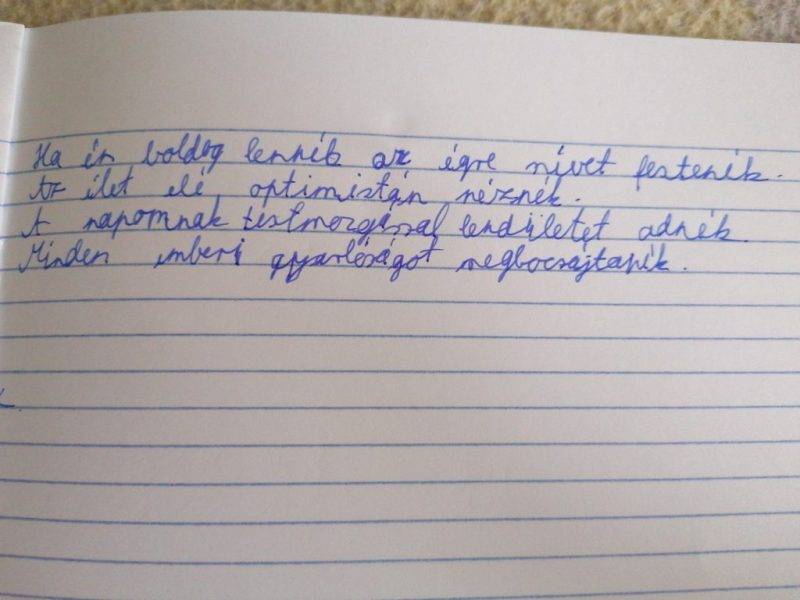 Ha én boldog lennék az égre nívet festenék.
Az élet elé optimistán néznék.
A napomnak testmozgással lendületet adnék.
Minden emberi gyarlóságot megbocsájtanék.